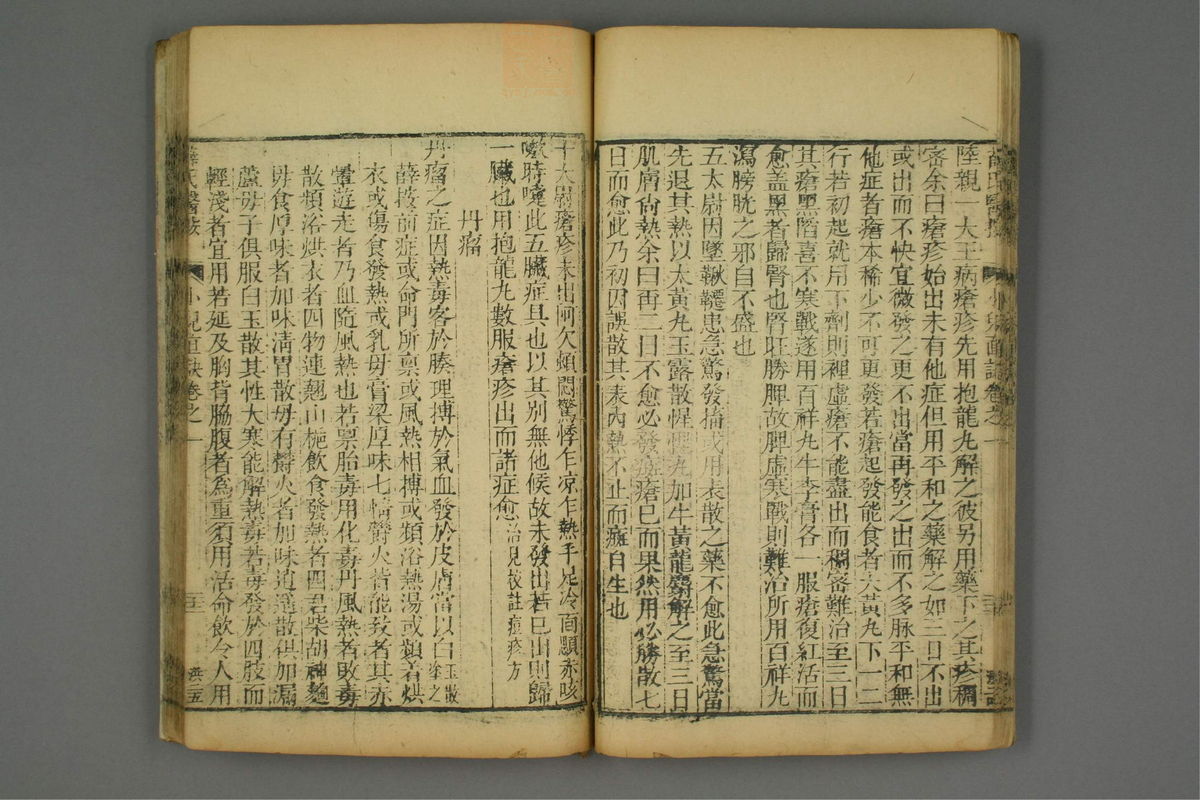 陸親一大王病瘡疹先用抱龍丸解之彼另用藥下之其疹稠
密余曰瘡疹始出未有他症但用平和之藥解之如三日不出
或出而不快宜微發之更不出當再發之出而不多脉平和無
他症者瘡本稀少不可更發若瘡起發能食者大黃丸下一二
行若初起就用下劑則裡虛瘡不能盡出而稠密難治至三日
其瘡黑陷喜不寒戰遂用百祥丸牛李膏各一服瘡復紅活而
愈蓋黑者歸腎也腎旺勝脾故脾虛寒戰則難治所用百祥丸
瀉膀胱之邪自不盛也
五太尉因墜鞦韆患急驚發搐或用表散之藥不愈此急驚當
先退其熱以大黃丸玉露散惺惺丸加牛黃龍麝解之至三日
肌膚尙熱余曰再二日不愈必發瘡巳而果然用必勝散七
日而愈此乃初因誤散其表內熱不止而自生也
瘡疹未出而欠頻悶驚悸乍凉乍熱手足冷面顋赤咳
嗽時嚏此五臟症具也以其別無他候故未發出若巳出則歸
一臟也用抱龍丸數服瘡疹出而諸症愈治見按註痘疹方
丹瘤
丹瘤之症因熱毒客於腠理搏於氣血發於皮膚當以白玉散塗之
薛按前症或命門所禀或風熱相搏或頻浴熱湯或頻着烘
衣或傷食發熱或乳母膏粱厚味七情鬱火皆能致者其赤
暈遊走者乃血隨風熱也若禀胎毒用化毒丹風熱者敗毒
散頻浴烘衣者四物連翹山梔飲食發熱者四君柴胡神麯
母食厚味者加味淸胃散母有鬱火者加味逍遥散俱加漏
蘆母子俱服白玉散其性大寒能解熱毒若毒發於四肢而
輕淺者宜用若延及胸背脇腹者爲重須用活命飲令人用
薛氏醫按
小兒直訣卷之一